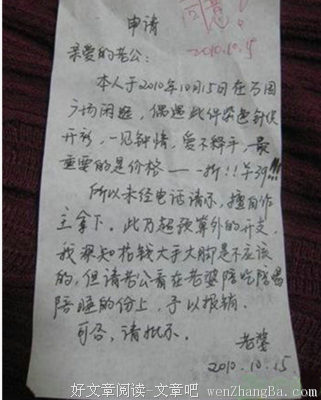 申请
同意。
2010.10.15
亲爱的老公:
本人于2010年10月15日在万国
广场闲逛,偶遇此件紫色针织
开衫,一见钟情,爱不释手,最
重要的是价格——一折!!羊毛!!!
所以未经电话请示,擅自作
主拿下。此乃超预算外的开支,
我深知花钱大手大脚是不应该
的,但请老公看在老婆陪吃陪唱
陪睡的份上,予以报销。
可否,请批示。
老婆
2010.10.15.
好文章阅读-文章吧 wenZhangBa.com